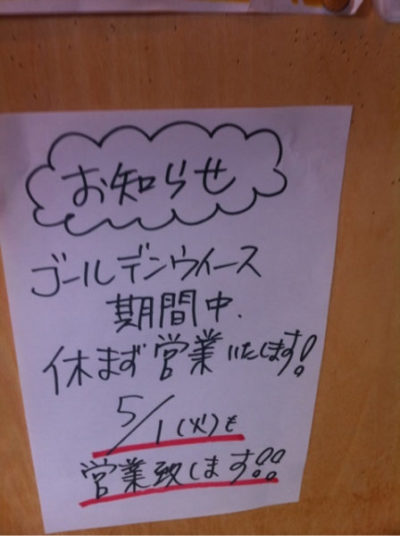 お知らせ
ゴールデンウイース
期間中、
休まず営業いたします!
5/1(火)も
営業致します!!